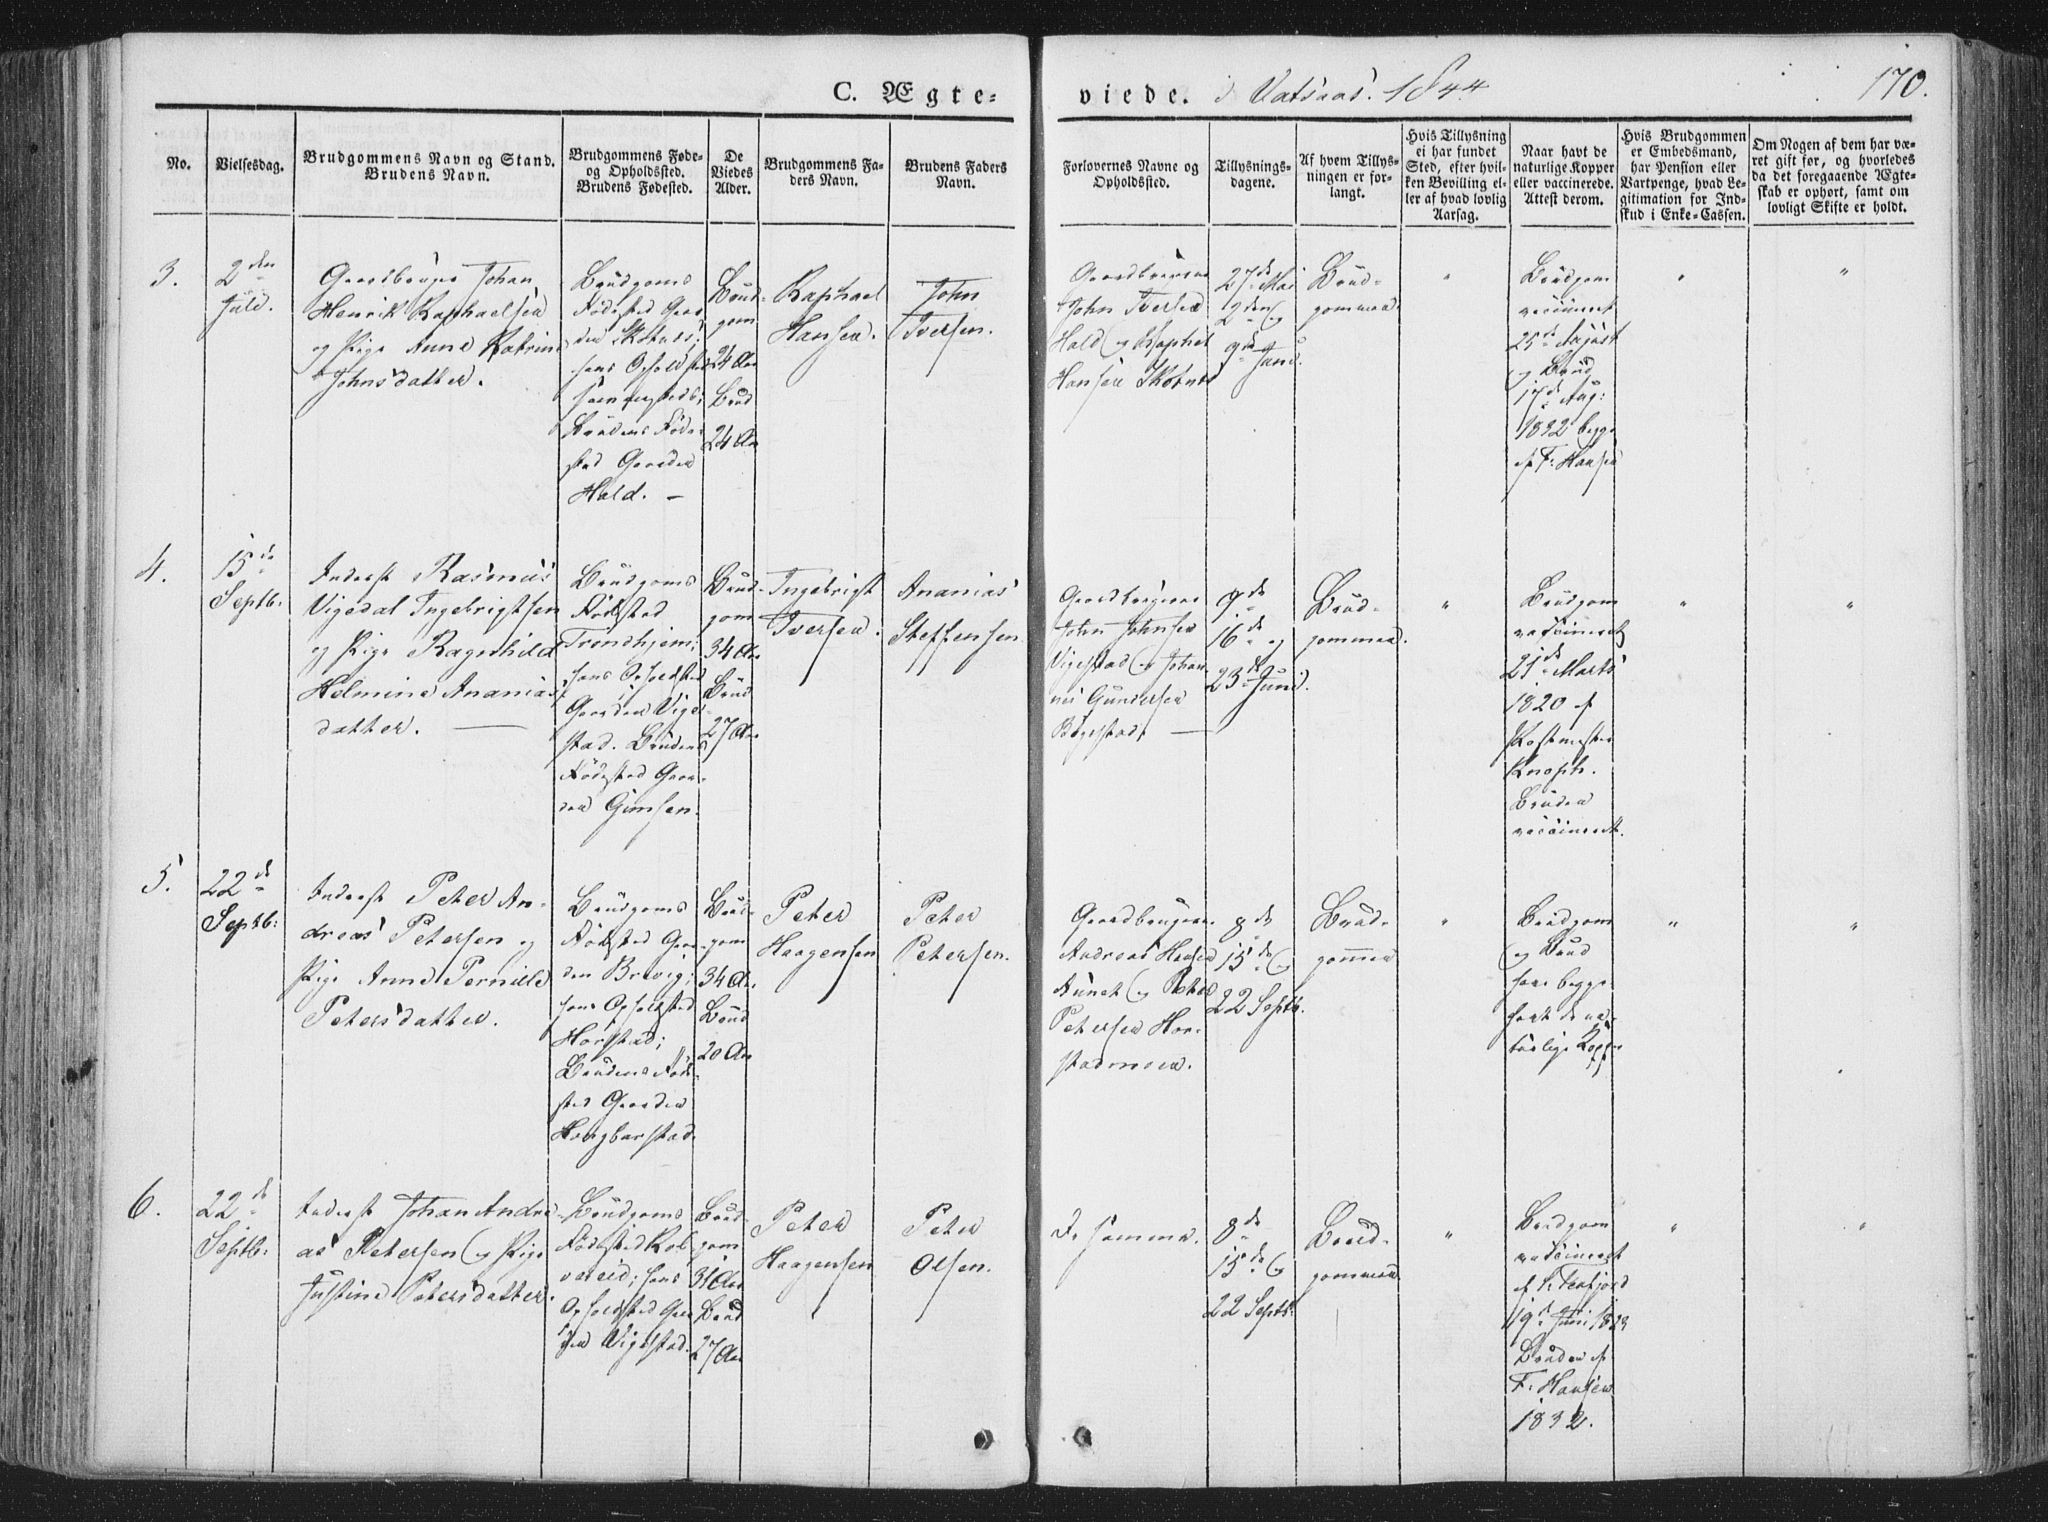 C. Ægte-
viede. i Vatsaas. 1844
170.
No.
Vielsesdag.
Brudgommens Navn og Stand.
Brudens Navn.
Brudgommens Føde-
og Opholdsted.
Brudens Fødested.
De
Viedes
Alder.
Brudgommens Fa-
ders Navn.
Brudens Faders
Navn.
Forlovernes Navne og
Opholdsted.
Tillysnings-
dagene.
Af hvem Tillys-
ningen er for-
langt.
Hvis Tillysning
ei har fundet
Sted, efter hvil-
ken Bevilling el-
ler af hvad lovlig
Aarsag.
Naar havt de
naturlige Kopper
eller vaccinerede.
Attest derom.
Hvis Brudgommen
er Embedsmand,
har Pension eller
Vartpenge, hvad Le-
gitimation for Ind-
skud i Enke-Cassen.
Om Nogen af dem har væ-
ret gift før, og hvorledes
da det foregaaende Ægte-
skab er ophørt, samt om
lovligt Skifte er holdt.
3.
2den
Juli.
Gaardbruger Johan
Henrik Raphaelsen
og Pige Anne Katrine
Johnsdatter.
Brudgoms
Fødested Gaar-
den Skotnes;
hans Opholdsted
sammesteds;
Brudens Føde-
sted Gaarden
Hald. —
Brud-
gom
24 Aar
Brud
24 Aar
Raphael
Hansen.
John
Iversen.
Gaardbrugerne
John Iversen
Hald og Raphael
Hansen Skotnes
27de Mai
2den og
9de Juni.
Brud-
gommen.
"
Brudgom
vaccineret
25de August
og Brud
17de Aug:
1832 begge
af F: Hansen
"
"
4.
15de
Septb:
Inderst Rasmus
Vigedal Ingebrigtsen
og Pige Ragnhild
Helmine Ananias
datter. —
Brudgoms
Fødested
Trondhjem;
hans Opholdsted
Gaarden Viges-
stad. Brudens
Fødested Gaar-
den Gimsen.
Brud-
gom
34 Aar
Brud
27 Aar
Ingebrigt
Iversen.
Ananias
Steffensen
Gaardbrugerne
John Johnsen
Vigestad og Johan-
nes Gundersen
9de
16de og
23de Juni.
Brud-
gommen.
"
Brudgom
vaccineret
21de Marts
1820 af
Postmester
Knoph.
Bruden
vaccineret.
"
"
5.
22de
Septb:
Inderst Peter An-
dreas Petersen og
Pige Anne Pernille
Petersdatter.
Brudgoms
Fødested Gaar-
den Brevig;
hans Opholdsted
Horstad;
Brudens Føde-
sted Gaarden
Brud-
gom
34 Aar.
Brud
20 Aar
Peter
Haagensen
Peter
Petersen.
Gaardbrugerne
Andreas Hansen
Aunet og Peter
Petersen Hor-
stadmoen.
8de
15de og
22 Septb.
Brud-
gommen
"
Brudgom
og Brud
have begge
havt de na-
turlige Kopper
"
"
6.
22de
Septb:
Inderst Johan Andre-
as Petersen og Pige
Justine Petersdatter.
Brudgoms
Fødested Kol-
vereid; hans
Opholdsted Gaar-
den Vigestad.
Brud-
gom
31 Aar
Brud
27 Aar
Peter
Haagensen
Peter
Olsen.
De samme.
8de
15de og
22 Septb:
Brud-
gommen
"
Brudgom
vaccineret
19de Juni
Bruden af
F: Hansen
1832.
"
"